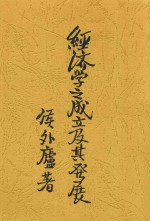 經济学之成立及其发展
侯外廬著